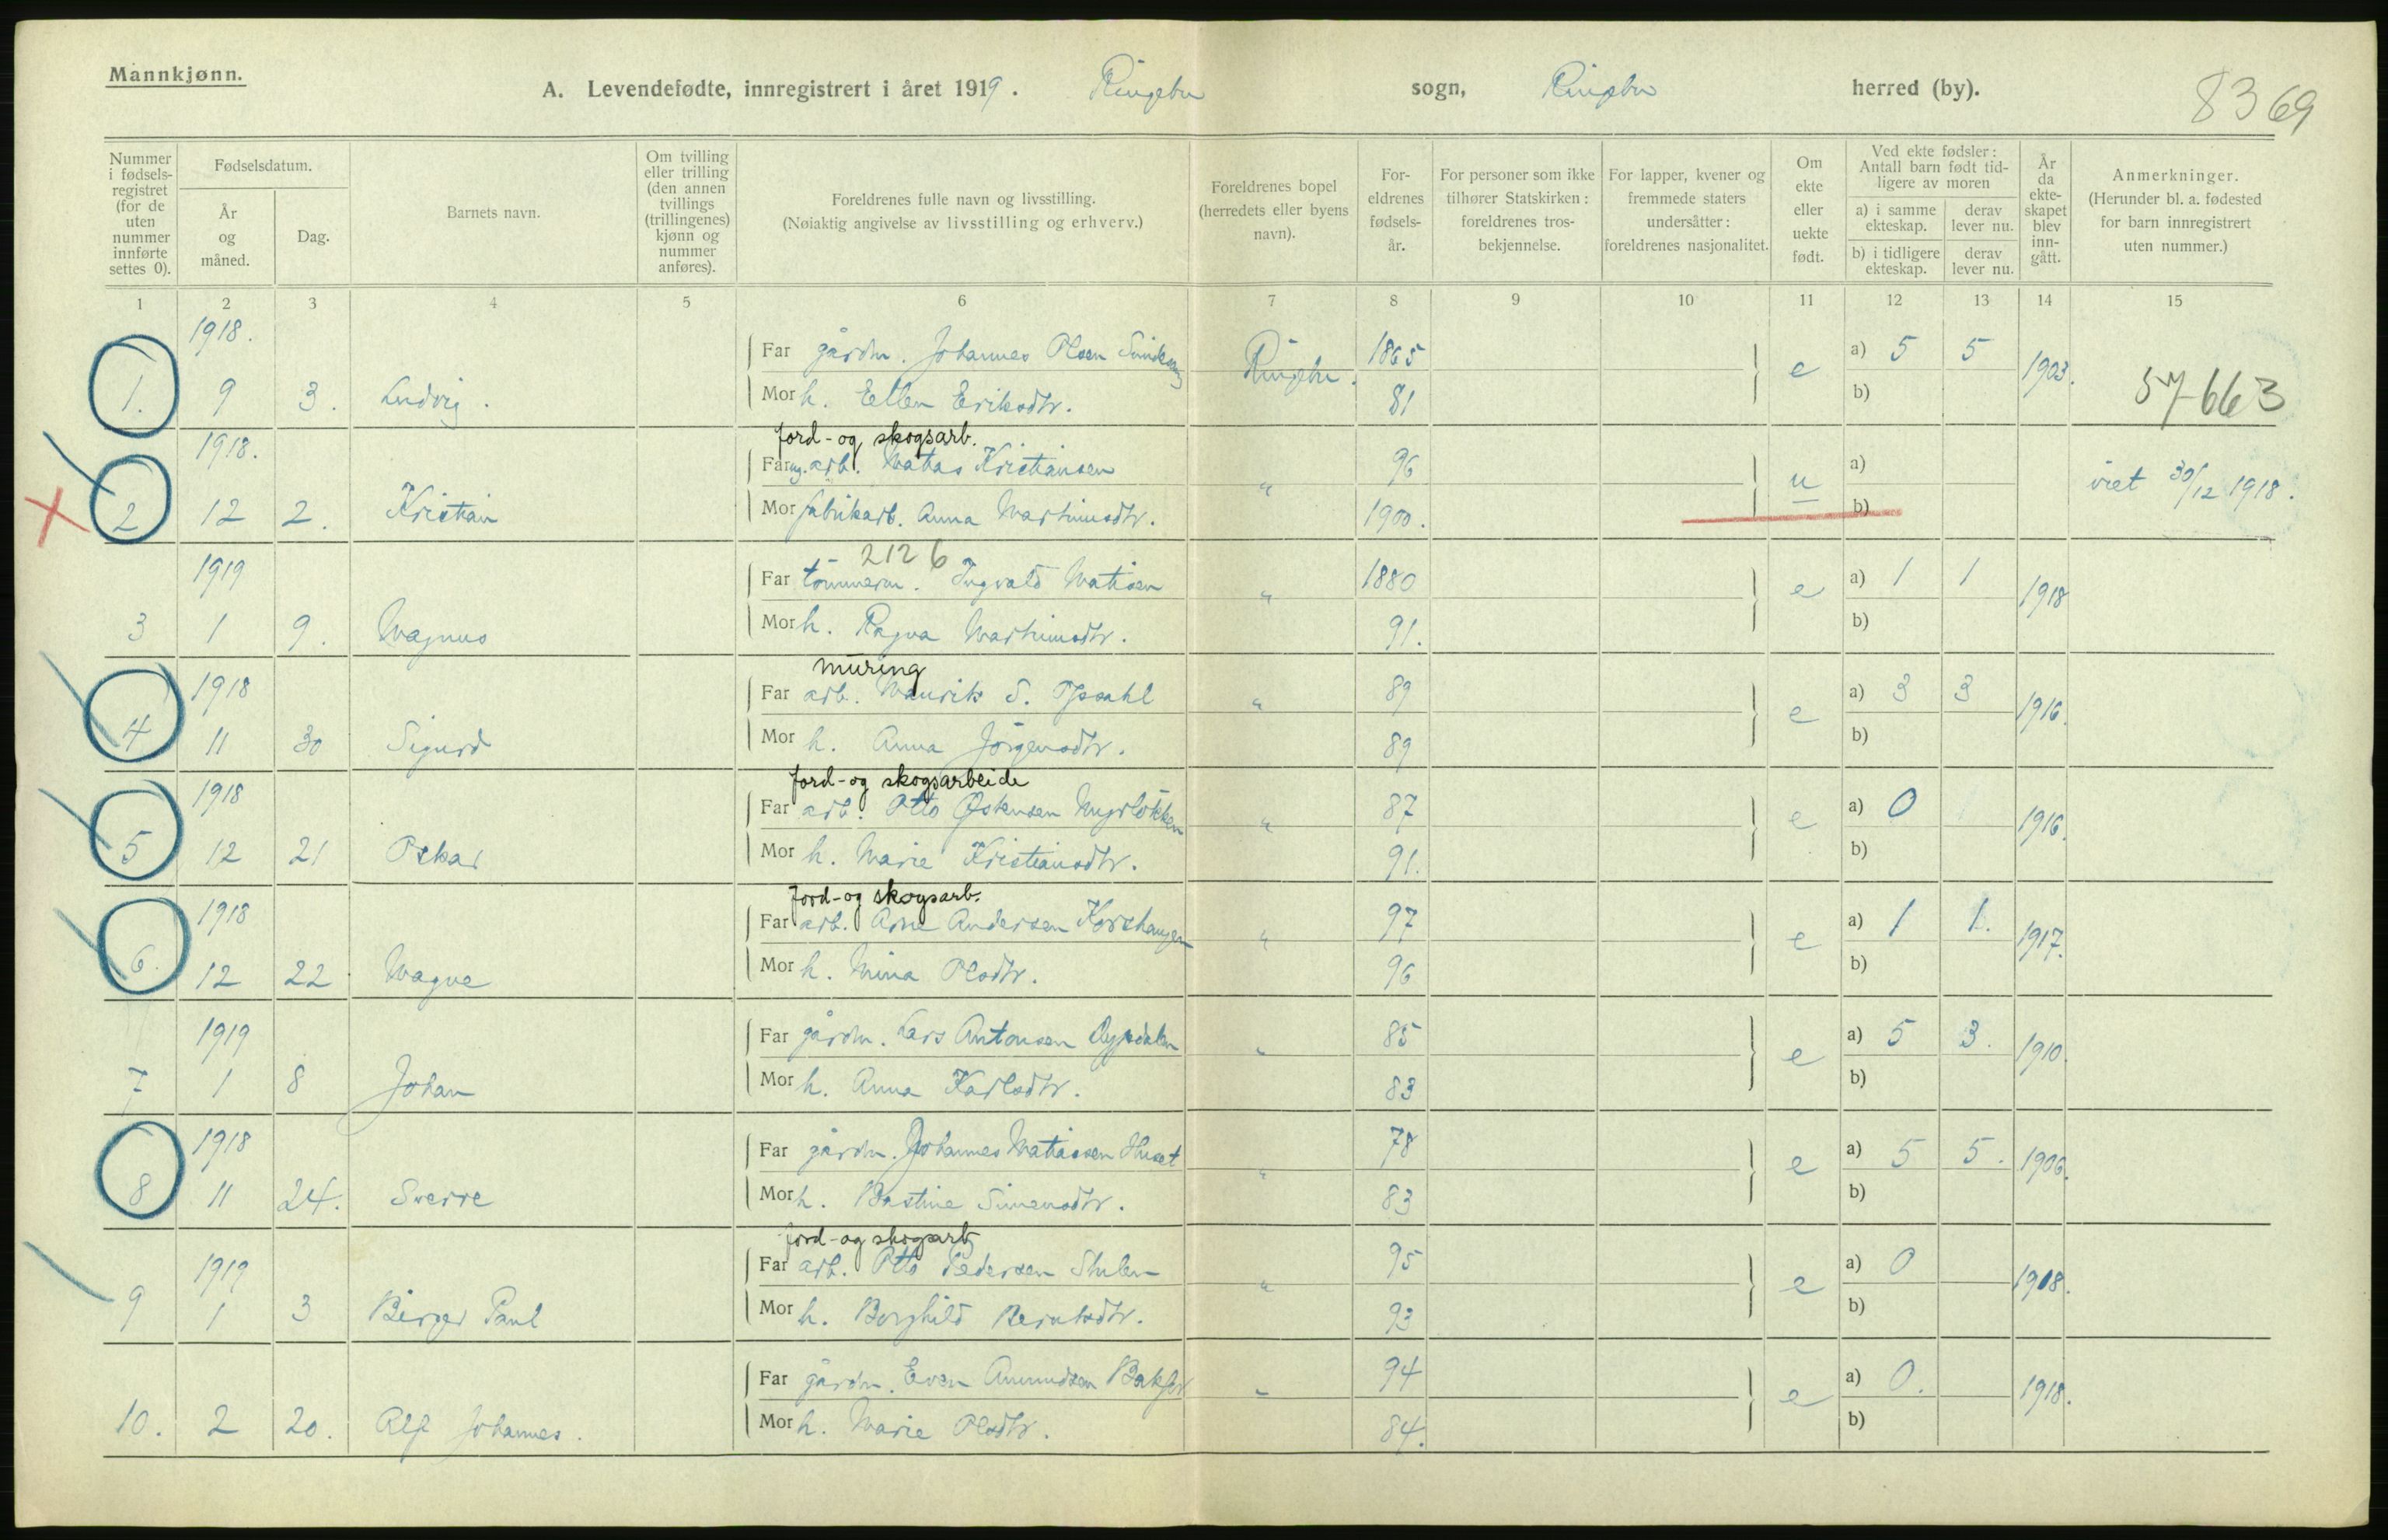 Mannkjønn.
A. Levendefødte, innregistrert i året 1919. Ringebu sogn, Ringebu herred (by).
8369
Nummer i fødselsregistret (for de uten nummer innførte settes 0).
Fødselsdatum.
År og måned.
Dag.
Barnets navn.
Om tvilling eller trilling (den annen tvillings (trillingenes) kjønn og nummer anføres).
Foreldrenes fulle navn og livsstilling.
(Nøiaktig angivelse av livsstilling og erhverv.)
Foreldrenes bopel (herredets eller byens navn).
Foreldrenes fødselsår.
For personer som ikke tilhører Statskirken: foreldrenes trosbekjennelse.
For lapper, kvener og fremmede staters undersåtter: foreldrenes nasjonalitet.
Om ekte eller uekte født.
Ved ekte fødsler: Antall barn født tidligere av moren
a) i samme ekteskap.
derav lever nu.
b) i tidligere ekteskap.
derav lever nu.
År da ekteskapet blev inngått.
Anmerkninger.
(Herunder bl. a. fødested for barn innregistrert uten nummer.)
1 2 3 4 5 6 7 8 9 10 11 12 13 14 15
1918.
Far gårdm. Johannes Olsen Ringebu. 1865 e a) 5 5 1903.
1. 9 3. Ludvig. Mor h. Ellen Eriksdtr. 81 b) 57-663
jord-og skogsarb.
1918. Far ug. arb. Matias Kristiansen " 96 u a)
2 12 2. Kristian Mor fabrikarb. Anna Martinusdtr. 1900. b) viet 30/12 1918.
2126
1919 Far tømmerm. Ingvald Matisen " 1880 e a) 1 1 1918
3 1 9. Magnus Mor h. Ragna Martinusdtr. 91. b)
muring
1918 Far arb. Mauritz S. Opsahl " 89 e a) 3 3 1916.
4 11 30 Sigurd Mor h. Anna Jörgensdtr. 89 b)
jord-og skogsarbeide
1918 Far arb. Otto Østensen Myrløkken " 87 e a) 0 1916.
5 12 21 Oskar Mor h. Marie Kristiansdtr. 91. b)
jord-og skogsarb.
1918 Far arb. Arne Andersen Korshaugen " 97 e a) 1 1. 1917.
6. 12 22 Magne Mor h. Mina Olsdtr. 96 b)
1919 Far gårdm. Lars Antonsen " 85 e a) 5 3. 1910.
7 1 8 Johan Mor h. Anna Karlsdtr. 83 b)
1918 Far gårdm. Johannes Matiassen Huset " 78 e a) 5 5. 1906.
8 11 24. Sverre Mor h. Bastine Simensdtr. 83 b)
jord-og skogsarb
1919 Far arb. Otto Pedersen " 95 e a) 0 1918.
9 1 3 Birger Paul Mor h. Borghild Berntsdtr. 93 b)
Far gårdm. Even Amundsen " 94 e a) 0. 1918.
10. 2 20. Alf Johannes. Mor h. Marie Olsdtr. 84. b)